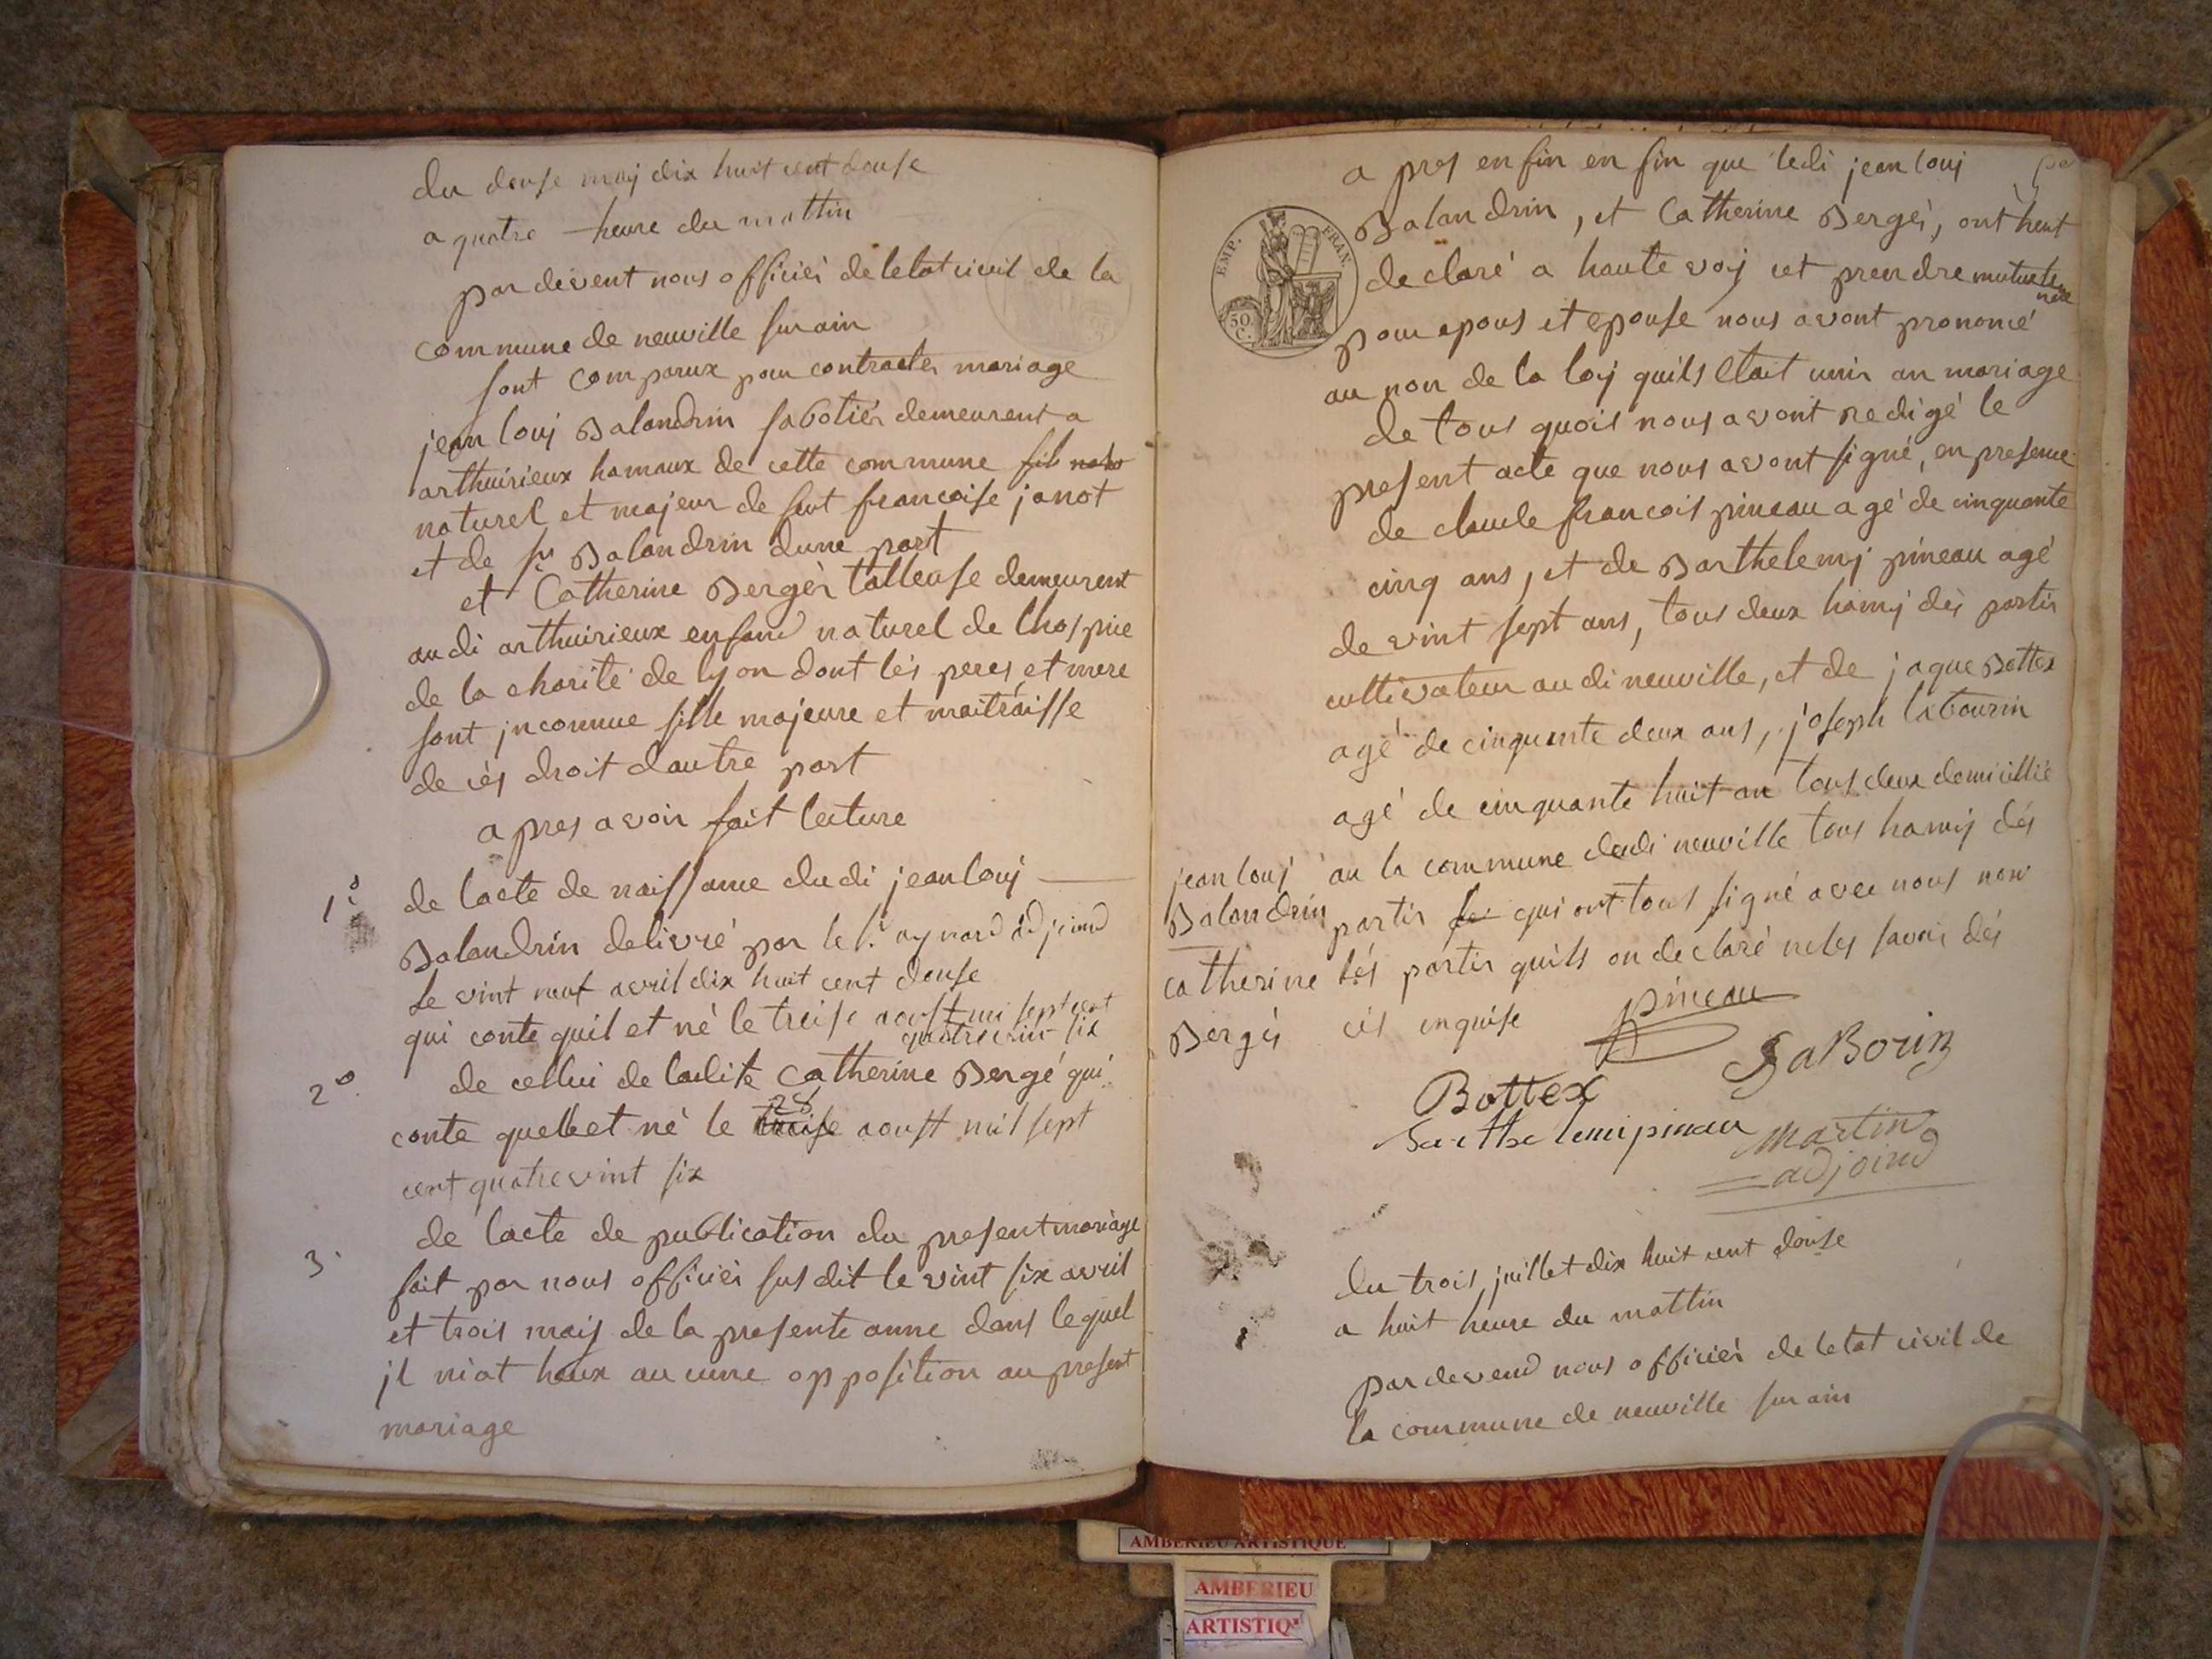 du douse maij dix huit cent douse
a quatre heure du mattin
par devent nous officier de letat civil de la
commune de neuville sur ain
sont comparux pour contracter mariage
jean louj Balandrin sabotier demeurent a
arthuirieux hamaux de cette commune fils
naturel et majeur de feut francoise janot
et de fr Balandrin dune part
et Catherine Bergér talleuse demeurent
au di arthuirieux enfand naturel de lhospice
de la charité de lyon dont lés peres et mere
sont jnconnue fille majeure et maitraisse
de cés droit dautre part
apres avoir fait lecture
1º de lacte de naissance dudi jean louj
Balandrin delivré par le s. aynard adjoind
le vint neuf avril dix huit cent douse
qui conte quil et né le treise aoust mi sept cent
quatrevint six
2º de cellui de ladite Catherine Bergé qui
conte quelle et né le treise 28 aoust mil sept
cent quatrevint six
3. de lacte de publication du present mariage
fait par nous officier sus dit le vint six avril
et trois maij de la presente anne dans lequel
jl niat heux aucune opposition au present
mariage
a pres en fin en fin que ledi jean louj
Balandrin, et Catherine Bergér, ont heut
declaré a haute voij cet prendre mutuelle
ment
pour epous et epouse nous avont prononcé
au non de la loij quils etait unir au mariage
de tous quois nous avont redigé le
present acte que nous avont signé, en presence
de claude francois pineau agé de cinquante
cinq ans, et de Barthelemj pineau agé
de vint sept ans, tous deux hamij dés partir
cultivateur au di neuville, et de jaque Bottex
agé de cinquante deux ans, joseph labourin
agé de cinquante huit an tous deux domicillié
au la commune dudi neuville tous hamij dés
partir qui ont tous signé avec nous non
lés partir quils on declaré neles savoir dés
cés enquise
jean louj
Balandrin
catherine
Bergér
EMP. FRAN.
50 C.
pineau
LaBorin
Bottex
barthelemi pineau
Martin
adjoind
Du trois juillet dix huit cent douse
a huit heure du mattin
par devend nous officier de letat civil de
la commune de neuville sur ain
AMBERIEU ARTISTIQUE
AMBERIEU
ARTISTIQ